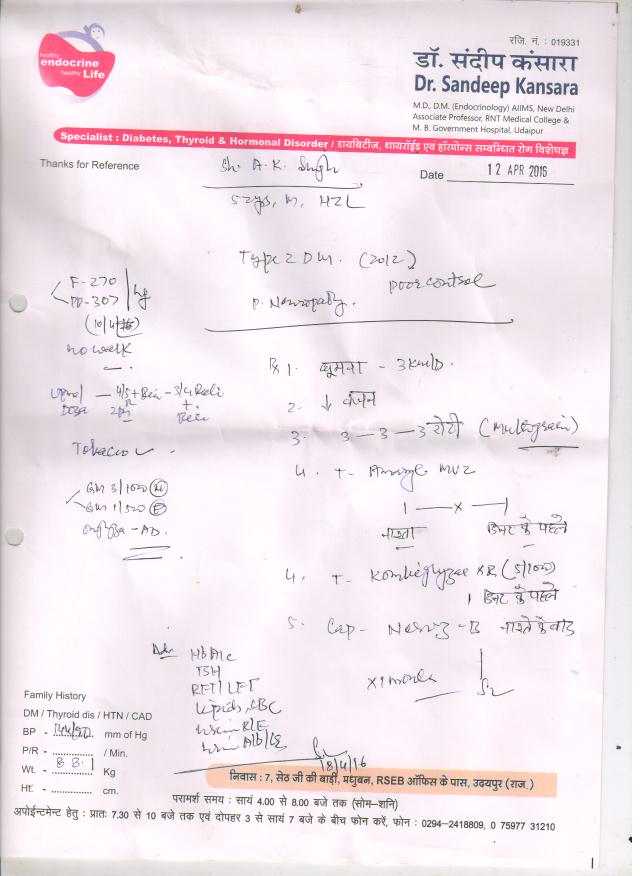 रजि. नं. : 019331
healthy
endocrine
healthy Life
डॉ. संदीप कंसारा
Dr. Sandeep Kansara
M.D., D.M. (Endocrinology) AIIMS, New Delhi
Associate Professor, RNT Medical College &
M. B. Government Hospital, Udaipur
Specialist : Diabetes, Thyroid & Hormonal Disorder / डायबिटीज, थायरॉईड एवं हॉरमोन्स सम्बन्धित रोग विशेषज्ञ
Thanks for Reference
Sh. A. K. Singh
Date 12 APR 2016
52yrs, M, HZL
Type 2 DM. (2012)
poor control
P. Neuropathy.
F-270
PP-307
no walk
Rx 1. घूमना - 3 km/D.
2. ↓ वजन
3. 3-3-3 रोटी (Multigrain)
Tobacco
4. T- MV2
1 — x — 1
नाश्ता डिनर के पहले
GM 3/1000
GM 1/500
onglyza - AD.
4. T- Kombiglyze XR (5/1000)
1 डिनर के पहले
5. Cap- -B नाश्ते के बाद
x 1 month
Adv HbA1c
TSH
RFT/LFT
Lipids, CBC
urine R/E
18/4/16
Family History
DM / Thyroid dis / HTN / CAD
BP - mm of Hg
P/R - / Min.
Wt. - 88.1 Kg
Ht. - cm.
निवास : 7, सेठ जी की बाड़ी, मधुबन, RSEB ऑफिस के पास, उदयपुर (राज.)
परामर्श समय : सायं 4.00 से 8.00 बजे तक (सोम-शनि)
अपोईन्टमेन्ट हेतु : प्रातः 7.30 से 10 बजे तक एवं दोपहर 3 से सायं 7 बजे के बीच फोन करें, फोन : 0294-2418809, 0 75977 31210